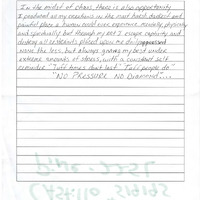 In the midst of chaos, there is also opportunity
I produced all my creations in the most harsh, darkest and
painful place a human could ever experience mentally, physically
and spiritually. But through my art I escape captivity and
destroy all restraints placed upon me and
None the less, but always giving my best under
extreme amounts of stress, with a constant self-
reminder "Tuff times don't last" Tuff people do"
"NO PRESSURE NO DIAMOND"...